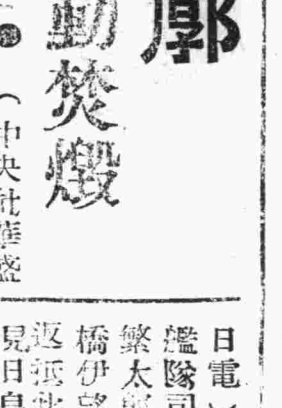 廓
動焚燬
（中央社華盛
日電
艦隊司
繁太
橋伊
返抵
見日